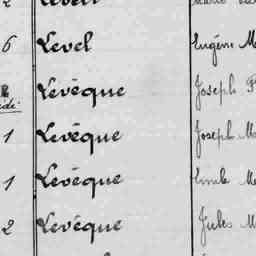 6 Level Eugène M
Levêque Joseph
1 Levêque Joseph M
1 Levêque Emile M
2 Levêque Jules M